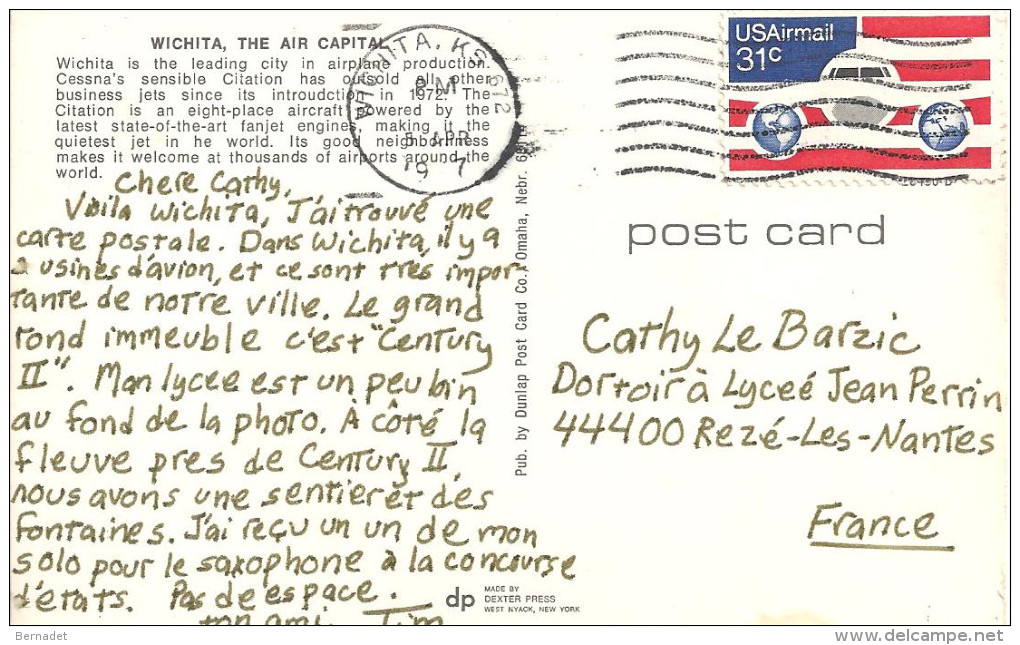 WICHITA, THE AIR CAPITAL
Wichita is the leading city in airplane production.
Cessna's sensible Citation has outsold all other
business jets since its introudction in 1972. The
Citation is an eight-place aircraft powered by the
latest state-of-the-art fanjet engines, making it the
quietest jet in he world. Its good neighborliness
makes it welcome at thousands of airports around the
world.
WICHITA, KS 672
PM
5 APR
19 7
USAirmail
31c
Chere Cathy,
Voila Wichita, J'ai trouvé une
carte postale. Dans Wichita, il y a
3 usines d'avion, et ce sont tres impor-
tante de notre ville. Le grand
rond immeuble c'est "Century
II". Mon lycee est un peu loin
au fond de la photo. À côté la
fleuve pres de Century II,
nous avons une sentier et des
fontaines. J'ai reçu un un de mon
solo pour le saxophone à la concourse
d'états. Pas de espace.
ton ami, Tim
Pub. by Dunlap Post Card Co., Omaha, Nebr.
post card
Cathy Le Barzic
Dortoir à Lyceé Jean Perrin
44400 Rezé-Les-Nantes
France
dp
MADE BY
DEXTER PRESS
WEST NYACK, NEW YORK
Bernadet
http://www.delcampe.net